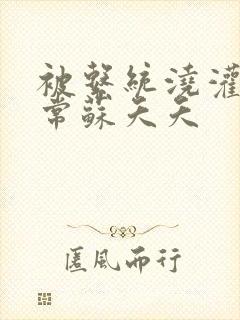 被繫統澆灌
常蘇夭夭
匿風而行